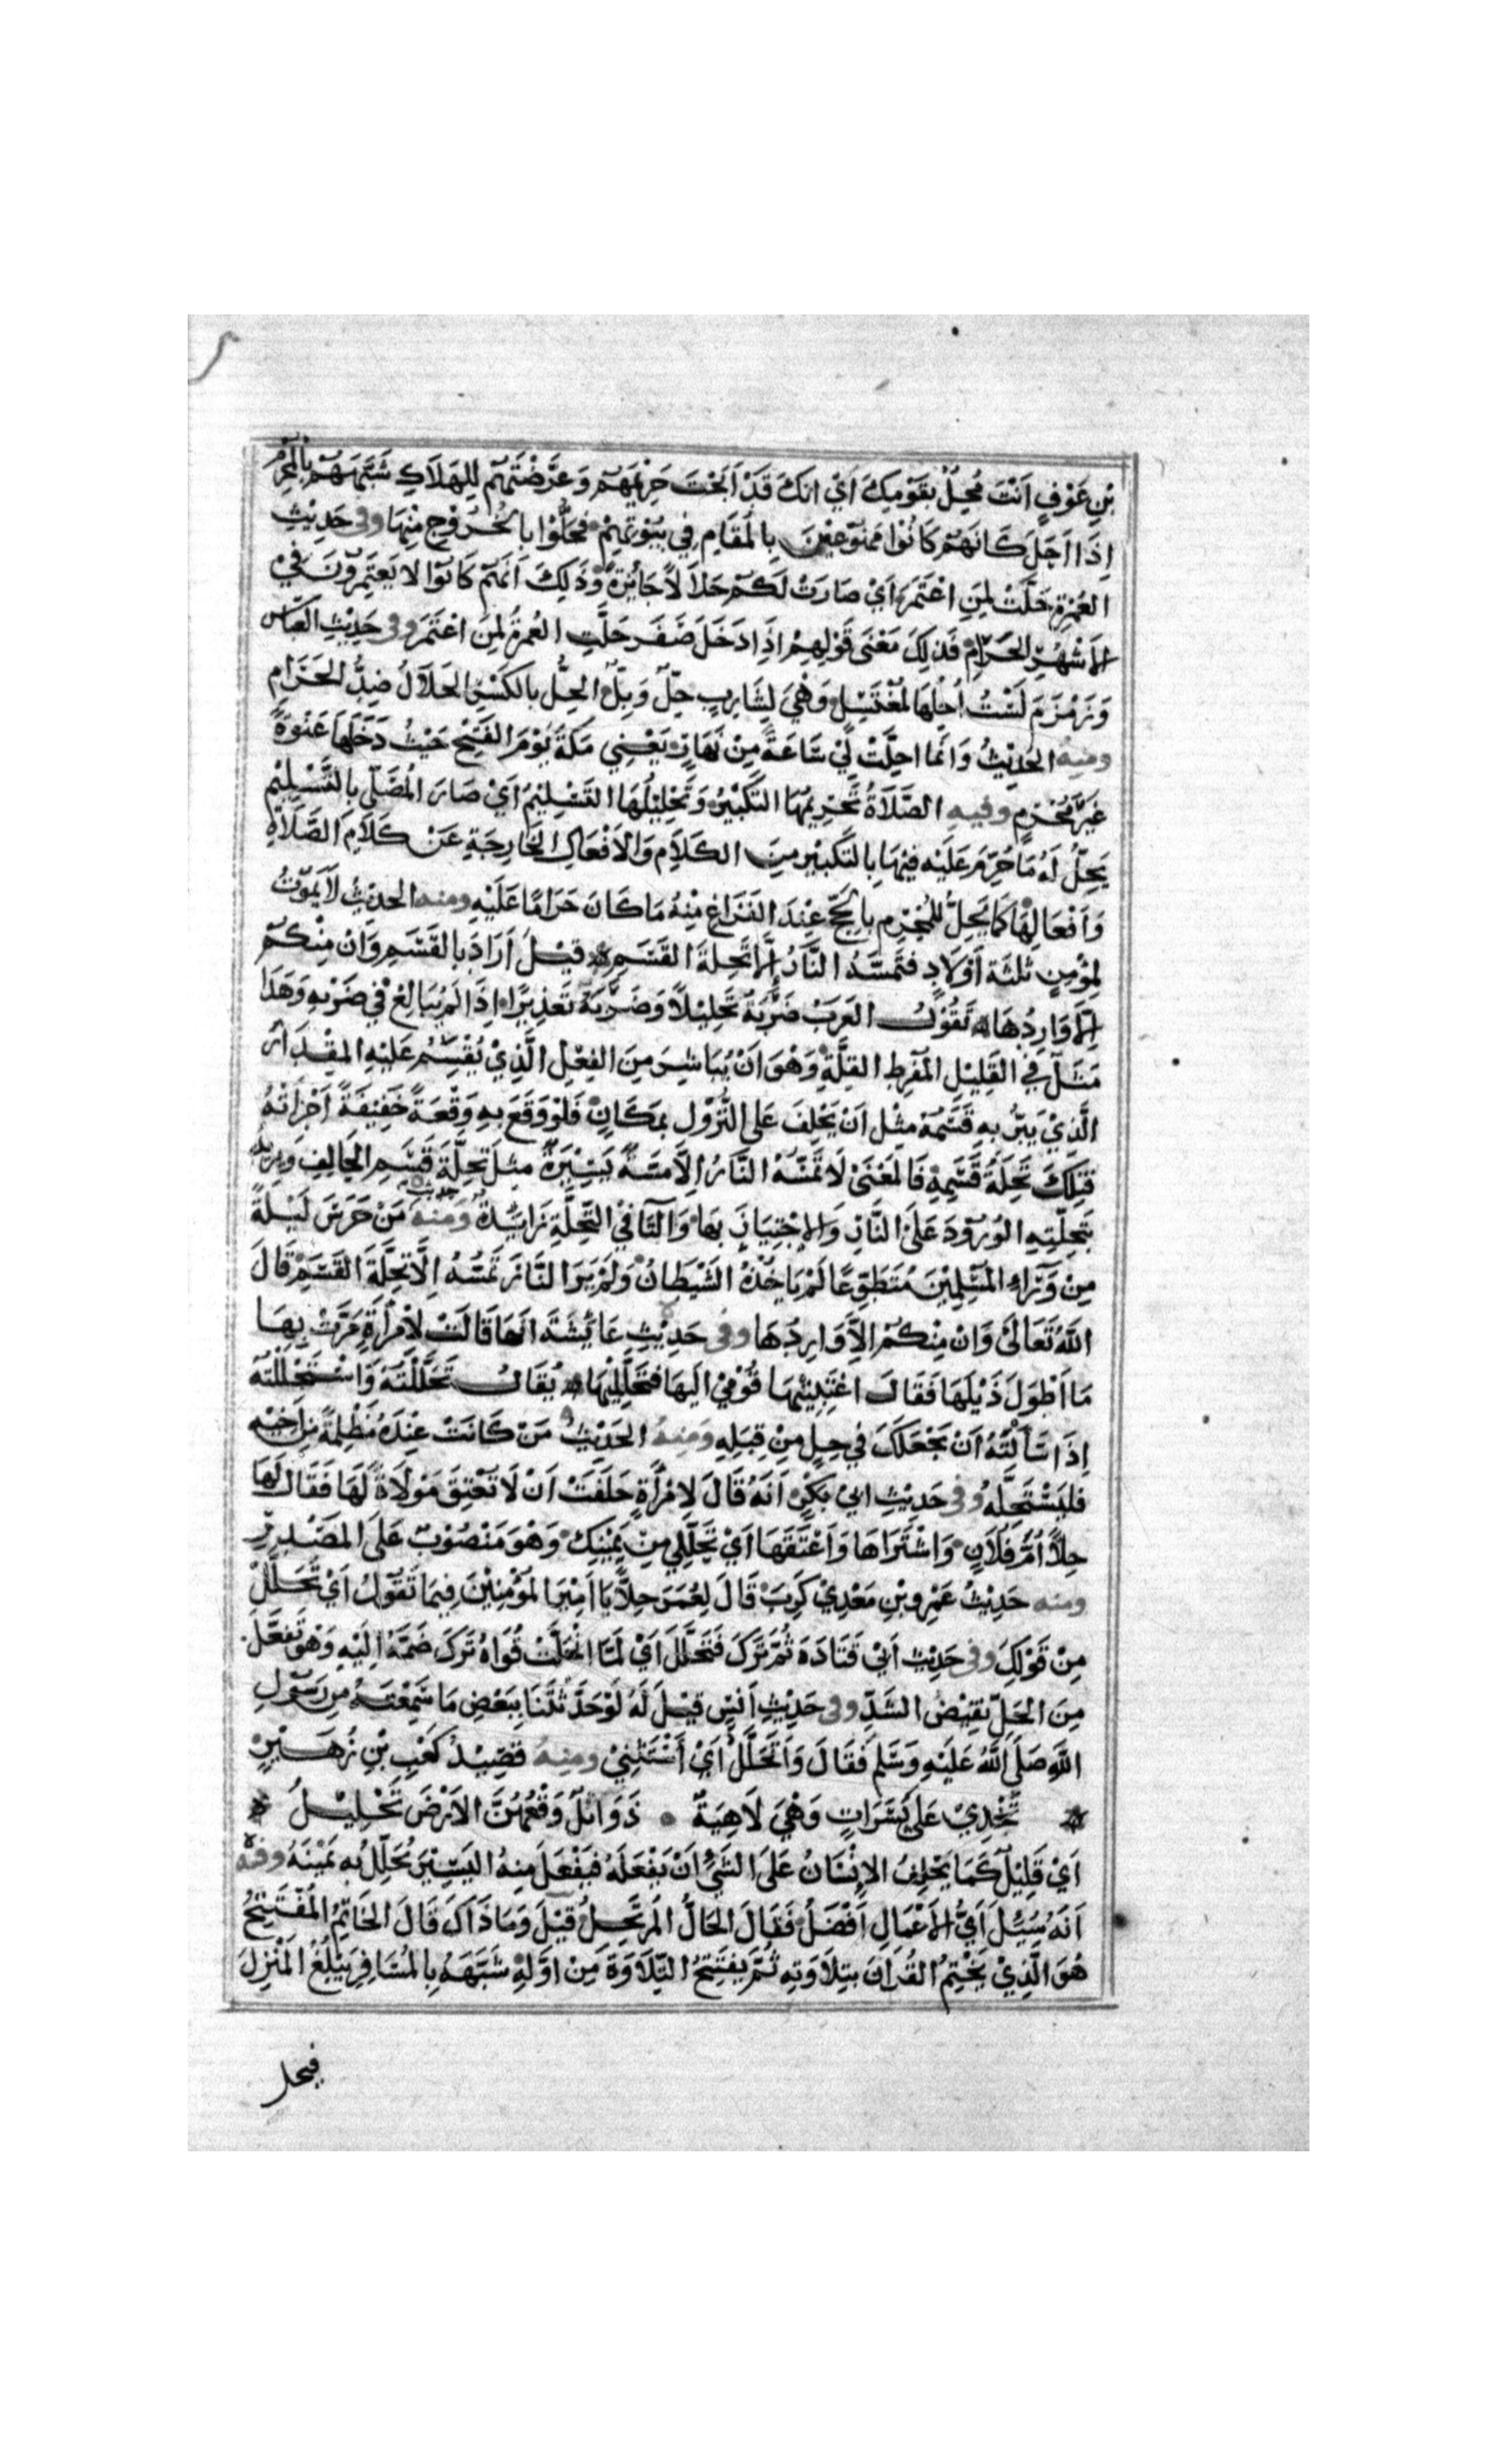 بْنِ عَوْفٍ اَنْتَ مُحِلٌّ بِقَوْمِكَ اَيْ اِنَكَ قَدْ اَبَحْتَ حَرِيْمَهُمْ وَعَرَّضْتَهُمْ لِلْهَلَاكِ شَبَّهَهُمْ بِالْمُحْرِمِ
اِذَا اَحَلَّ كَانَهُمْ كَانُوْا مَمْنُوْعِيْنَ بِالْمَقَامِ فِي بُيُوْتِهِمْ فَحَلُّوْا بِالْخُرُوْجِ مِنْهَا وفي حَدِيْثِ
العُمْرَةِ حَلَّتْ لِمَنِ اعْتَمَرَ اَيْ صَارَتْ لَكُمْ حَلَالاً جَائِزَةً وَذَلِكَ اَنَهُمْ كَانُوْا لا يَعْتَمِرُوْنَ فِيْ
الاَشْهُرِ الحَرَامِ فَذَلِكَ مَعْنَى قَوْلِهِمْ اِذَا دَخَلَ صَفَر حَلَّتِ العُمرَةُ لِمَنِ اعْتَمَرَ وفى حَدِيْثِ العَبَّاسِ
وَزَمْزَمَ لَسْتُ اُحِلُّهَا لِمُغْتَسِلٍ وَهْيَ لِشَارِبٍ حِلٌّ وَبِلٌّ الحِلُّ بِالكَسْرِ الحَلَالُ ضِدُّ الحَرَامِ
ومنه الحَدِيْثُ وَانَّما احِلَّتْ لِيْ سَاعَةً مِنْ نَهَارٍ يَعْنِي مَكَّةَ يَوْمَ الفَتْحِ حَيْثُ دَخَلَهَا عَنْوَةً
غَيْرَ مُحْرِمٍ وفيه الصَّلَاةُ تَحْرِيْمُهَا التَّكْبِيْرُ وَتَحْلِيْلُهَا التَّسْلِيْمُ اَيْ صَارَ المُصَلِّي بِالتَّسْلِيْمِ
يَحِلُّ لَهُ مَا حُرِّمَ عَلَيْهِ فِيْهَا بِالتَكْبِيْرِ مِنَ الكَلَامِ وَالاَفْعَالِ الخَارِجَةِ عَنْ كَلَامِ الصَّلَاةِ
وَاَفْعَالِهَا كَمَا يَحِلُّ لِلْمُحْرِمِ بِالحَجِّ عِنْدَ الفَرَاغِ مِنْهُ مَا كَانَ حَرَامًا عَلَيْهِ ومنه الحديثُ لَا يَمُوْتُ
لِمُؤْمِنٍ ثَلثَة اَوْلَادٍ فَتَمَسَّهُ النَّارُ اِلَّا تَحِلَّةَ القَسَمِ قِيْلَ اَرَادَ بِالقَسَمِ وَانْ مِنْكُمْ
الَّا وَارِدُهَا تَقُوْلُ العَرَبُ ضَرْبَهُ تَحْلِيْلاً وَضَرْبَهُ تَعْذِيْرًا اِذَا لَمْ يُبَالِغْ فِي ضَرْبِهِ وَهَذَا
مَثَلٌ فِي القَلِيْلِ المُفْرِطِ القِلَّةِ وَهْوَ اَنْ يُبَاشِرَ مِنَ الفِعْلِ الَّذِيْ يُقْسِمُ عَلَيْهِ المِقْدَارَ
الَّذِيْ يَبَرُّ بِهِ قَسَمَهُ مِثْل اَنْ يَحْلِفَ عَلى النُّزُوْلِ بِمَكَانٍ فَلَوْ وَقَعَ بِهِ وَقْعَةً خَفِيْفَةً اَجْزَاَتْهُ
فَتِلْكَ تَحِلَّةُ قَسَمِهِ فَالمَعْنَى لَا تَمَسّهُ النَّارُ اِلَّا مَسَّةً يَسِيْرَةً مثلَ تَحِلَّةِ قَسَمِ الحَالِفِ وَيُريدُ
بِتَحِلَّتِهِ الوُرُوْدَ عَلَى النَّارِ وَالاجْتِيَازَ بِهَا وَالتَّا في التَّحِلَّةِ زَايدَةٌ وَمِنْهُ حديث مَنْ حَرَسَ لَيْلَةً
مِنْ وَرَاءِ المُسْلِمِيْنَ مُتَطَوِّعًا لَمْ يَاخُذْهُ الشَّيْطَانُ وَلَمْ يَرَ النَّارَ تَمَسُّهُ اِلَّا تَحِلَّةَ القَسَمِ قَالَ
اللهُ تَعَالَىْ وَانْ مِنْكُمْ الَّا وَارِدُهَا وفى حَدِيْثِ عَائِشَةَ انَهَا قَالَتْ لِامْرَأَةٍ مَرَّتْ بِهَا
مَا اَطْوَلَ ذَيْلَهَا فَقَالَ اغْتَبْتِيْهَا قُوْمِيْ الَيهَا فَتَحَلَّلِيْهَا يُقَالُ تَحَلَّلْتُهُ وَاسْتَحْلَلْتُهُ
اِذَا سَأَلْتَهُ اَنْ يَجْعَلَكَ فِي حِلٍّ مِنْ قِبَلِهِ وَمِنْهُ الحَدِيْثُ مَنْ كَانَتْ عِنْدَهُ مَظْلِمَةٌ مِنْ اَخِيْهِ
فَليَسْتَحِلَّهُ وفي حَدِيْثِ ابِيْ بَكْرٍ اَنَهُ قَالَ لِامْرَأَةٍ حَلَفَتْ اَنْ لَا تَعْتِقَ مَوْلَاةً لَهَا فَقَالَ لَهَا
حِلًّا اُمَّ فُلَانٍ وَاشْتَرَاهَا وَاَعْتَقَهَا اَيْ تَحَلَّلِي مِنْ يَمِيْنِكِ وَهْوَ مَنْصُوْبٌ عَلَى المَصْدَرِ
ومنه حَدِيْثُ عَمْرِو بْنِ مَعْدِيْ كَرِبَ قَالَ لِعُمَرَ حِلًّا يَا اَمِيْرَ المُؤْمِنِيْنَ فِيمَا تَقُوْلُ اَيْ تَحَلَّلْ
مِنْ قَوْلِكَ وفى حَدِيْثِ اَبِيْ قَتَادَةَ ثُمَّ تَرَكَ فَتَحَلَّلَ اَيْ لَمَّا انْحَلَّتْ قُوَاهُ تَرَكَ ضَمَّهُ اِلَيْهِ وَهْوَ تَفَعَّلَ
مِنَ الحَلِّ نَقِيْضُ الشَدِّ وفى حَدِيْثِ اَنَسٍ قِيْلَ لَهُ لَوْ حَدَّثْتَنَا بِبَعْضِ مَا سَمِعْتَهُ مِن رَسُوْلِ
اللهِ صَلَى اللهُ عَلَيْهِ وَسَلَّمَ فَقَالَ وَاَتَحَلَّلُ اَيْ اَسْتَثْنِيْ ومِنهُ قَصِيْدُ كَعْبِ بْنِ زُهَيْرٍ
تَخْدِيْ عَلَى يَسَرَاتٍ وَهْيَ لَاهِيَةٌ ذَوَابلٌ وَقْعُهُنَّ الاَرْضَ تَحْلِيْلُ
اَيْ قَلِيْلٌ كَمَا يَحْلِفُ الاِنْسَانُ عَلَى الشَيْءِ اَنْ يَفْعَلَهُ فَيَفْعَلَ مِنهُ اليَسِيْرَ يُحَلِّلُ بِهِ يَمْيِنَهُ وفيه
اَنَهُ سُئِلَ اَيُّ الاَعْمَالِ اَفْضَلُ فَقَالَ الحَالُّ المُرْتَحِلُ قِيْلَ وَمَا ذَاكَ قَالَ الخَاتِمُ المُفْتَتِحُ
هُوَ الَّذِيْ يَخْتِمُ القُرانَ بِتِلَاوَتِهِ ثُمَّ يَفتَتِحُ التِّلَاوَةَ مِنْ اوَّلِهِ شَبَّهَهُ بِالمُسَافِرِ يَبْلُغُ المَنْزِلَ
فيحل